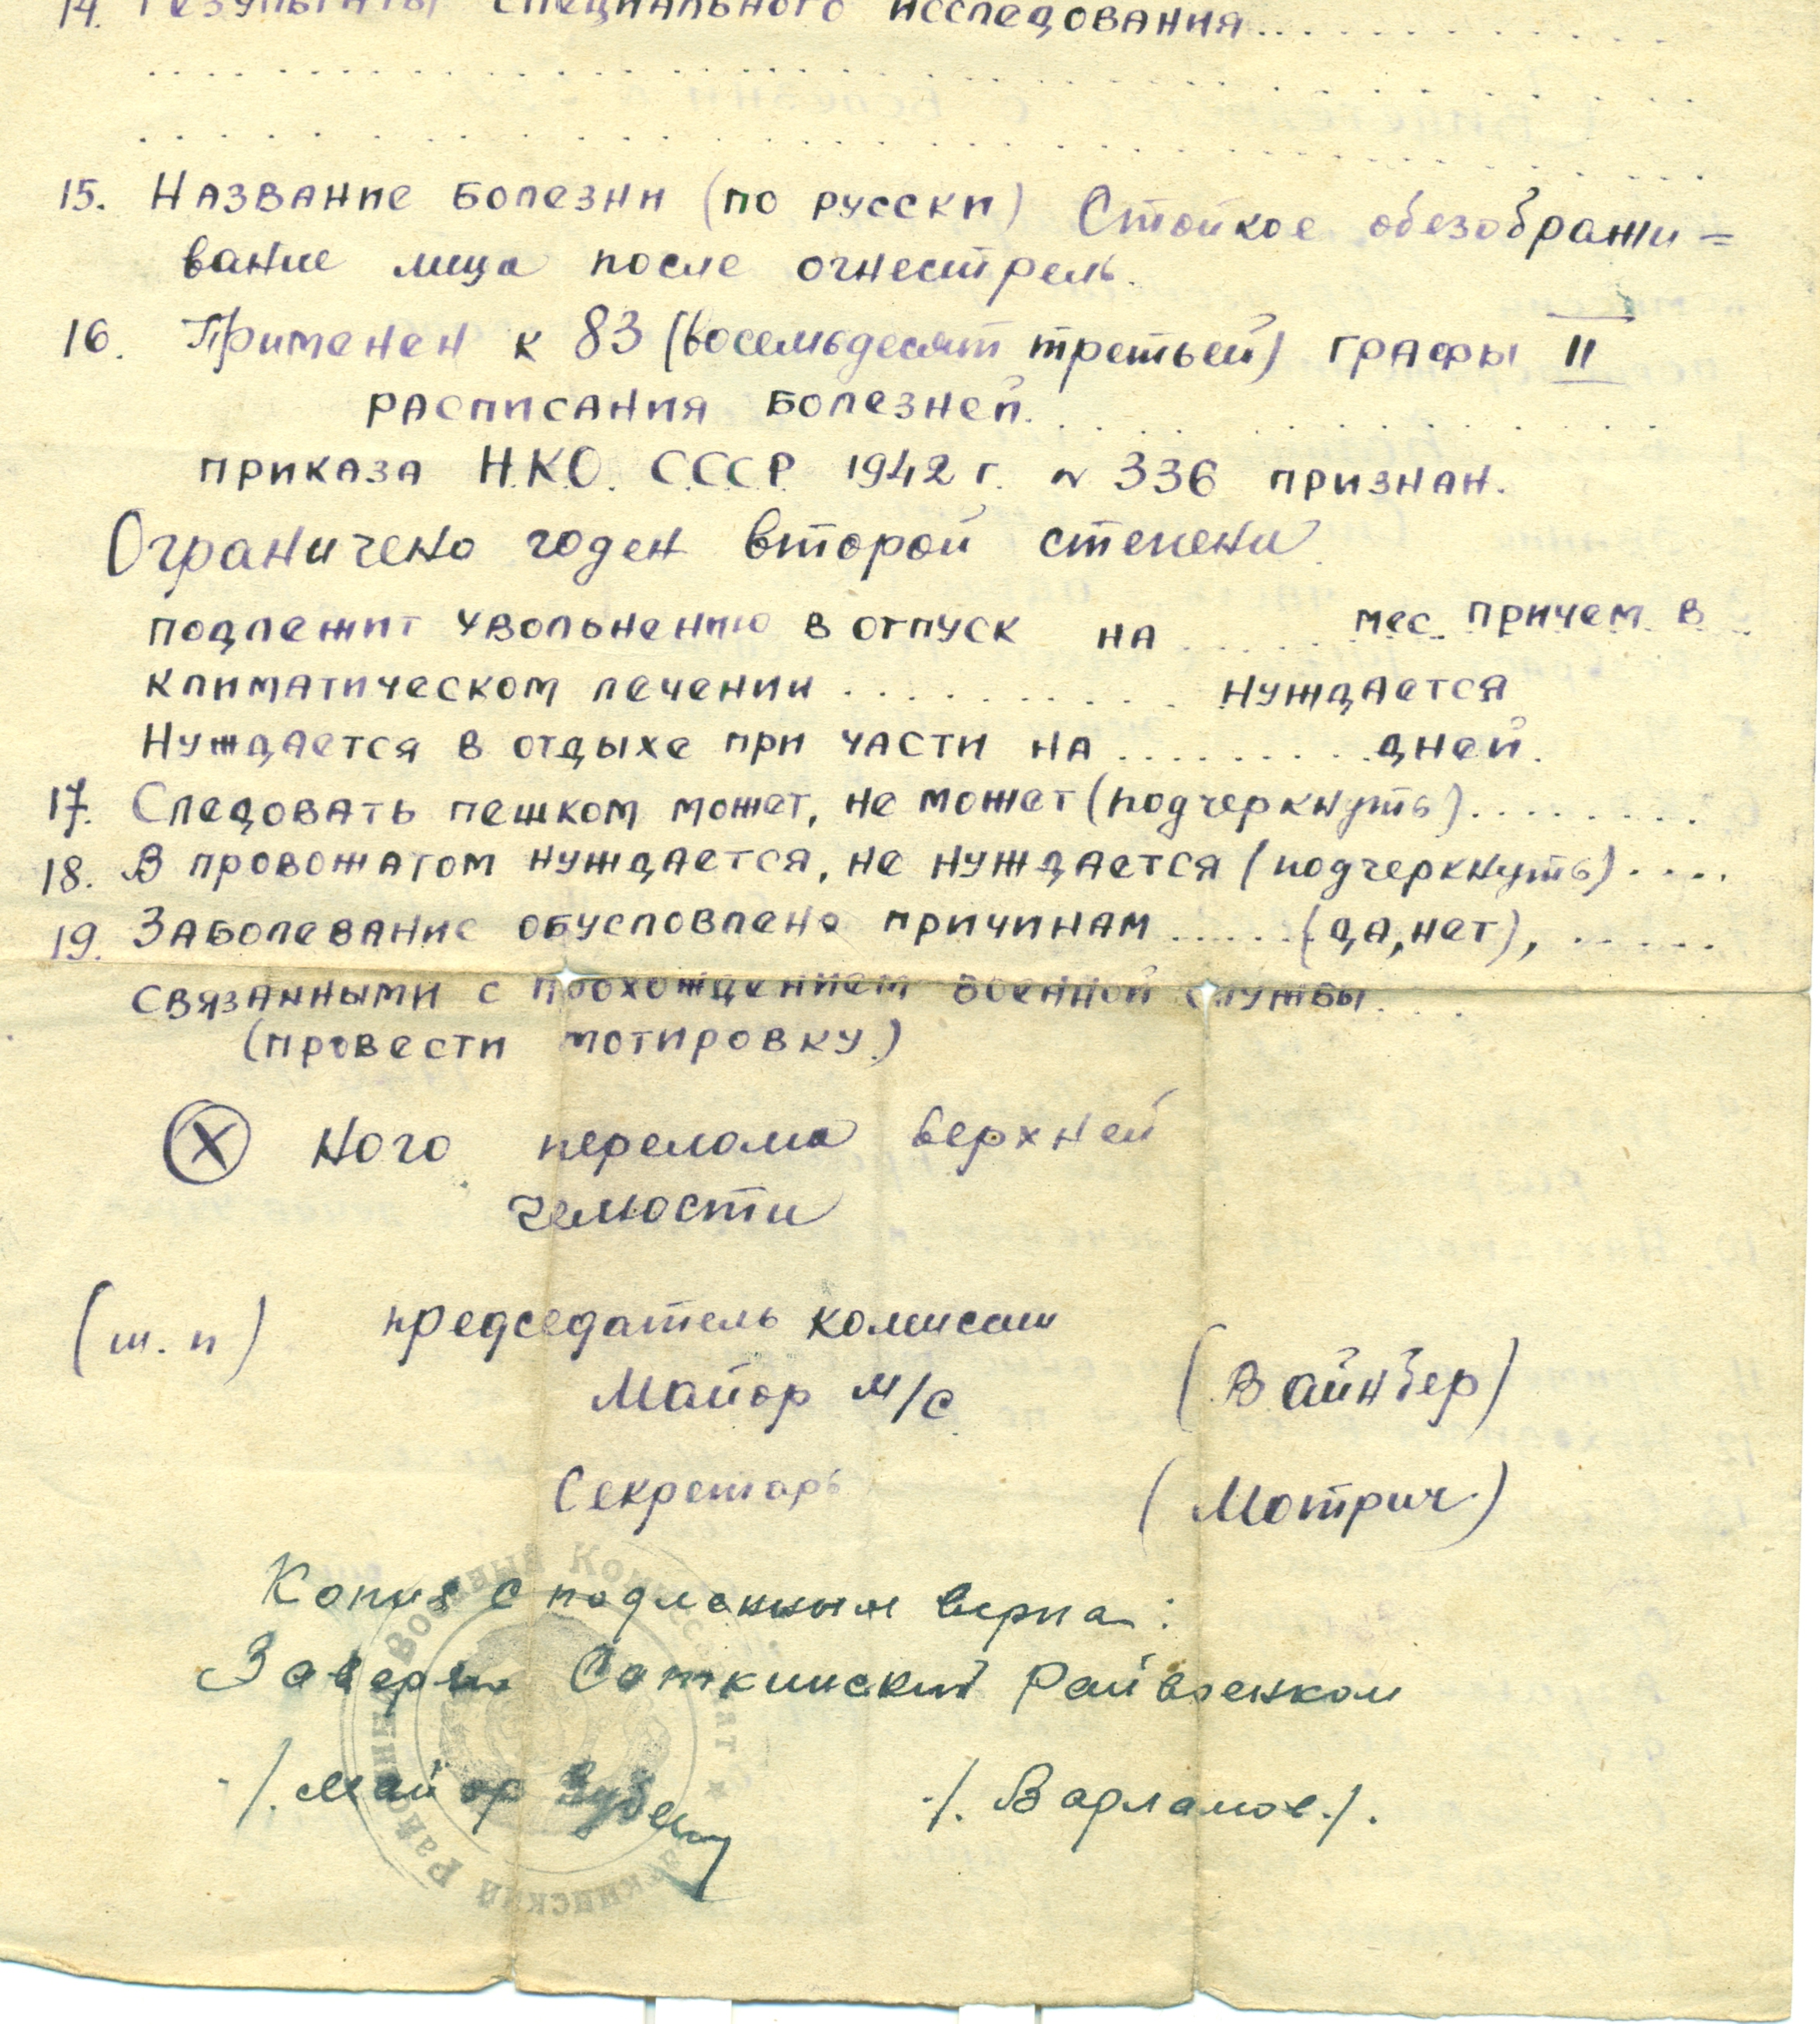 14. Результаты специального исследования............
15. Название болезни (по русски) Стойкое обезображи=
вание лица после огнестрель.
16. Применен к 83 (восемьдесят третьей) графы II
расписания болезней. . . . . . . . . .
приказа Н.К.О. С.С.С.Р. 1942 г. N 336 признан.
Ограничено годен второй степени
подлежит увольнению в отпуск на ...... мес. причем в
климатическом лечении .......... нуждается
Нуждается в отдыхе при части на ......... дней.
17. Следовать пешком может, не может (подчеркнуть)........
18. В провожатом нуждается, не нуждается (подчеркнуть)....
19. Заболевание обусловлено причинам ...... (да, нет), .....
связанными с прохождением военной службы...
(провести мотировку)
X ного перелома верхней
челюсти
(ш. п) председатель комисии
Майор м/с (Вайнбер)
Секретарь (Мотрич)
Копия с подленным верна:
Заверил Саткинский Райвоенком
./. майор ./. Варламов ./.
Саткинский Районный Военный Комиссариат